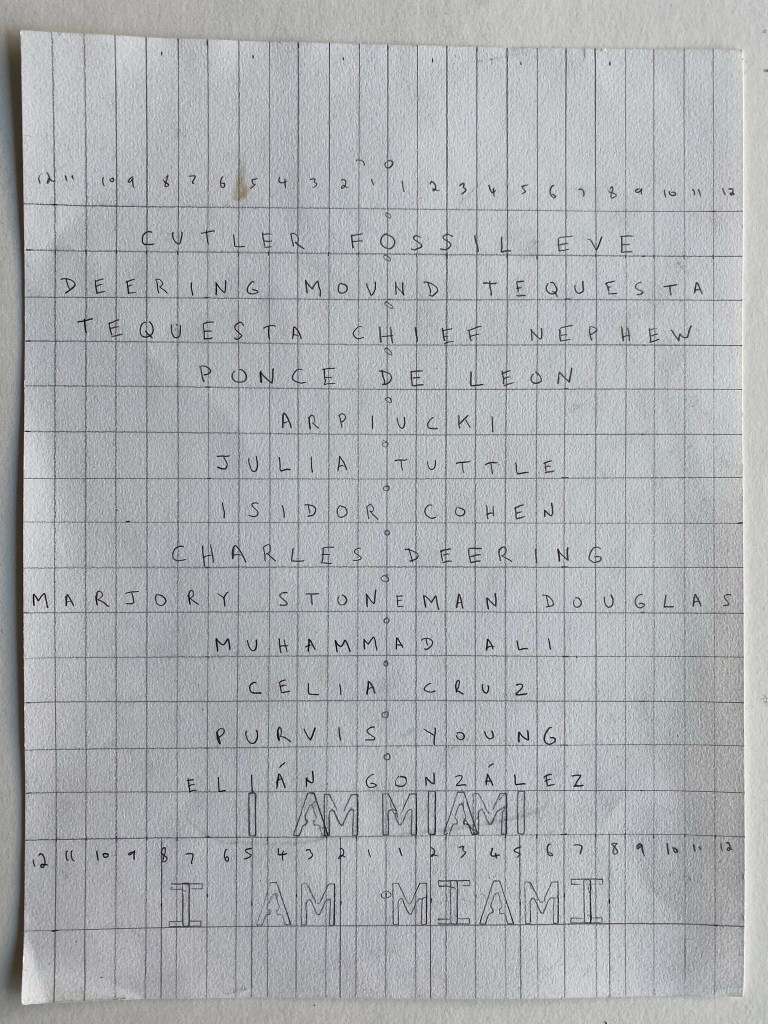 12 11 10 9 8 7 6 5 4 3 2 1 0 1 2 3 4 5 6 7 8 9 10 11 12
CUTLER FOSSIL EVE
DEERING MOUND TEQUESTA
TEQUESTA CHIEF NEPHEW
PONCE DE LEON
ARPIUCKI
JULIA TUTTLE
ISIDOR COHEN
CHARLES DEERING
MARJORY STONEMAN DOUGLAS
MUHAMMAD ALI
CELIA CRUZ
PURVIS YOUNG
ELIÁN GONZÁLEZ
I AM MIAMI
12 11 10 9 8 7 6 5 4 3 2 1 1 2 3 4 5 6 7 8 9 10 11 12
I AM MIAMI